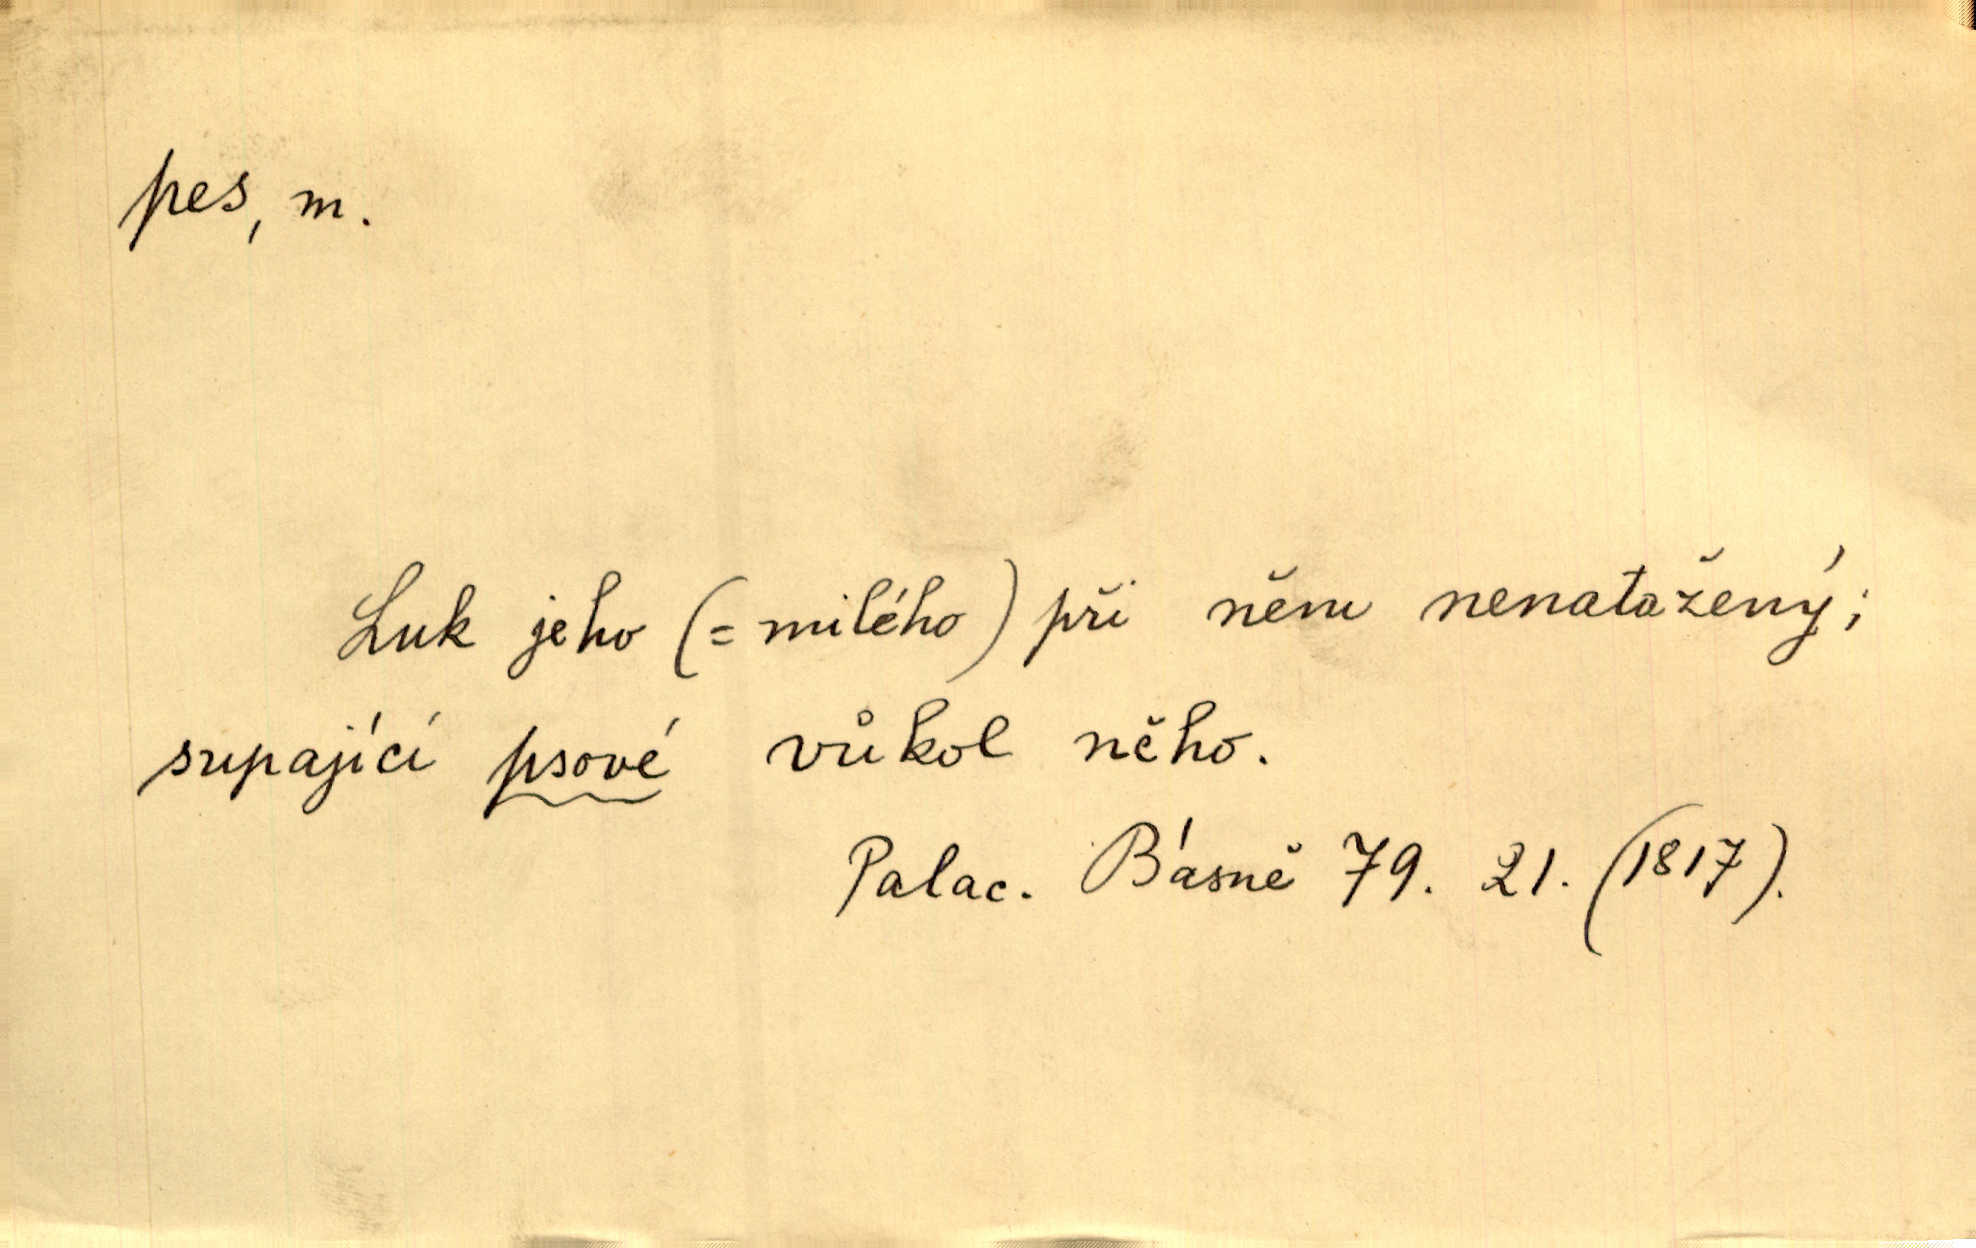 pes, m.
Luk jeho (= milého) při něm nenatažený;
supající psové vůkol něho.
Palac. Básně 79. 21. (1817).